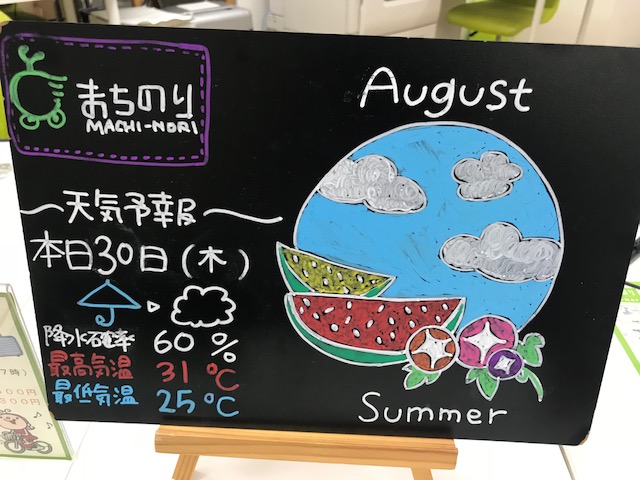 まちのり
MACHI-NORI
August
～天気予報～
本日30日(木)
降水確率 60 %
最高気温 31 ℃
最低気温 25 ℃
Summer